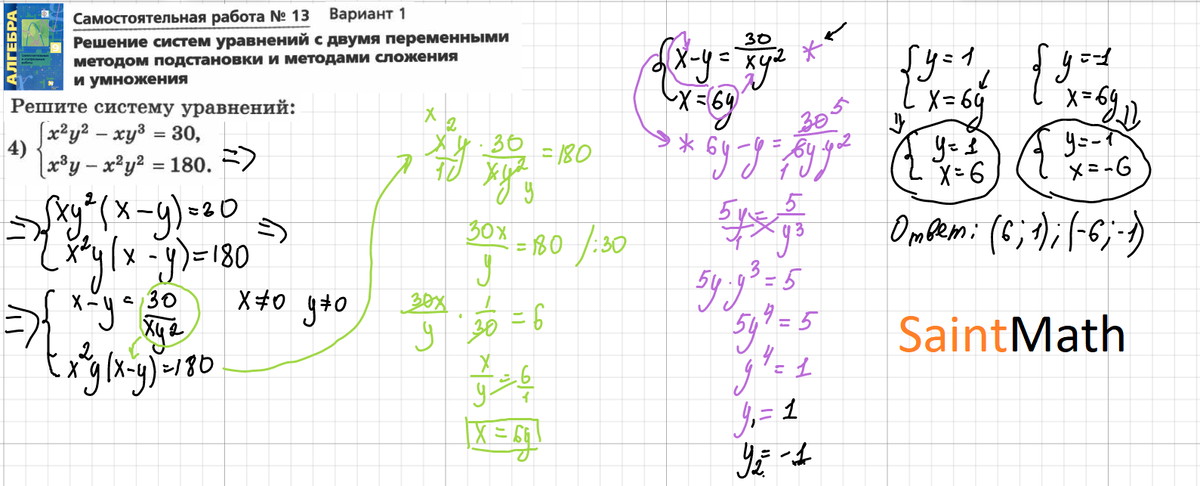 АЛГЕБРА
Самостоятельная работа № 13 Вариант 1
Решение систем уравнений с двумя переменными
методом подстановки и методами сложения
и умножения
Решите систему уравнений:
4) { x²y² – xy³ = 30,
x³y – x²y² = 180. =>
=> { xy²(x - y) = 30
x²y(x - y) = 180 =>
=> { x - y = 30/xy² x ≠ 0 y ≠ 0
x²y(x-y) = 180
x
x²y/1 · 30/xy² = 180
y
30x/y = 180 /:30
30x/y · 1/30 = 6
x/y = 6/1
x = 6y
{ x - y = 30/xy² *
x = 6y
* 6y - y = 30/6y·y²
5
1
5y/1 = 5/y³
5y·y³ = 5
5y⁴ = 5
y⁴ = 1
y₁ = 1
y₂ = -1
{ y = 1
x = 6y
{ y = 1
x = 6
{ y = -1
x = 6y
{ y = -1
x = -6
Ответ: (6; 1); (-6; -1)
SaintMath